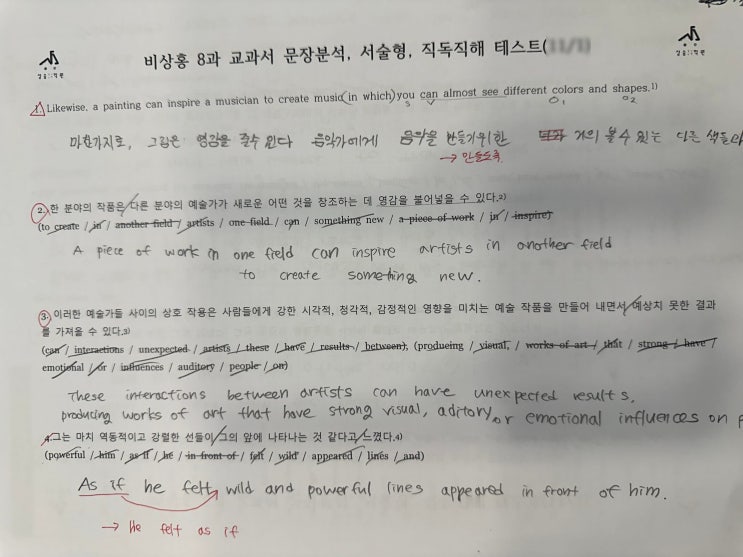 비상홍 8과 교과서 문장분석, 서술형, 직독직해 테스트(
1. Likewise, a painting can inspire a musician to create music(in which) you can almost see different colors and shapes.1)
S V O1 O2
마찬가지로, 그림은 영감을 줄수 있다 음악가에게 음악을 만들기위한 거의 볼수 있는 다른 색들
→ 만들도록
2. 한 분야의 작품은 다른 분야의 예술가가 새로운 어떤 것을 창조하는 데 영감을 불어넣을 수 있다.2)
(to create / in / another field / artists / one field / can / something new / a piece of work / in / inspire)
A piece of work in one field can inspire artists in another field
to create something new.
3. 이러한 예술가들 사이의 상호 작용은 사람들에게 강한 시각적, 청각적, 감정적인 영향을 미치는 예술 작품을 만들어 내면서 예상치 못한 결과
를 가져올 수 있다.3)
(can / interactions / unexpected / artists / these / have / results / between), (producing / visual, / works of art / that / strong / have /
emotional / or / influences / auditory / people / on)
These interactions between artists can have unexpected results,
producing works of art that have strong visual, aditory, or emotional influences on
4. 그는 마치 역동적이고 강렬한 선들이 그의 앞에 나타나는 것 같다고 느꼈다.4)
(powerful / him / as if / he / in front of / felt / wild / appeared / lines / and)
As if he felt wild and powerful lines appeared in front of him.
→ He felt as if